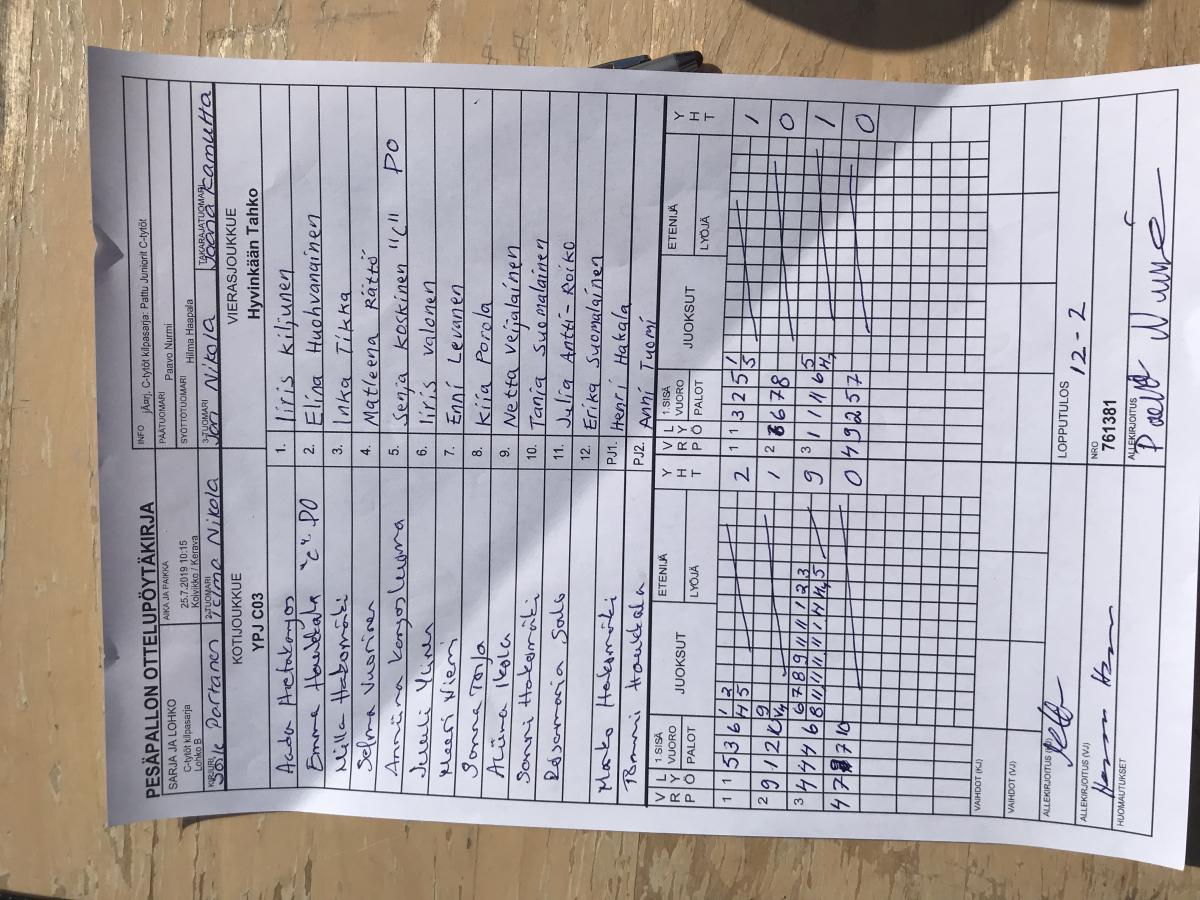 PESÄPALLON OTTELUPÖYTÄKIRJA
SARJA JA LOHKO
C-tytöt kilpasarja
Lohko B
AIKA JA PAIKKA
25.7.2019 10:15
Kolvikko / Kerava
INFO jÄrj. C-tytöt kilpasarja: Pattu Juniorit C-tytöt
PÄÄTUOMARI Paavo Nurmi
SYÖTTÖTUOMARI Hilma Haapala
KIRJURI Partanen
2-TUOMARI Nikola
3-TUOMARI Jari Nikola
TAKARAJATUOMARI Kamutta
KOTIJOUKKUE
YPJ C03
VIERASJOUKKUE
Hyvinkään Tahko
Aada Hietakangas
1. Iiris Kiljunen
Emma Haukkala "C" PO
2. Elina Huohvanainen
Milla Hakomäki
3. Inka Tikka
Selma Vuorinen
4. Matleena Rättö
Anniina Kangasluoma
5. Senja Koskinen "C" PO
6. Iiris Valonen
Meeri Niemi
7. Enni Levanen
8. Kiia Porola
Aliina Ikola
9. Netta Veijalainen
Sanni Hakomäki
10. Tanja Suomalainen
Rosamaria Salo
11. Julia Antti-Roiko
12. Erika Suomalainen
Marko Hakomäki
PJ1. Henri Hakala
Haukkala
PJ2. Anni Tuomi
V R P L Y Ö 1.SISÄ VUORO PALOT JUOKSUT ETENIJÄ LYÖJÄ Y H T
V R P L Y Ö 1.SISÄ VUORO PALOT JUOKSUT ETENIJÄ LYÖJÄ Y H T
1 1 5 3 6 1 2 4 5 2
1 1 3 2 5 1 5 1
2 9 1 2 1
2 6 7 8 0
3 4 4 4 6 6 7 8 9 11 11 1 2 3 9
3 1 1 11 6 5 1
4 7 7 10 0
4 9 2 5 7 0
VAIHDOT (KJ)
VAIHDOT (VJ)
ALLEKIRJOITUS
LOPPUTULOS 12-2
ALLEKIRJOITUS (VJ)
NRO
761381
HUOMAUTUKSET
ALLEKIRJOITUS
Paavo Nurmi